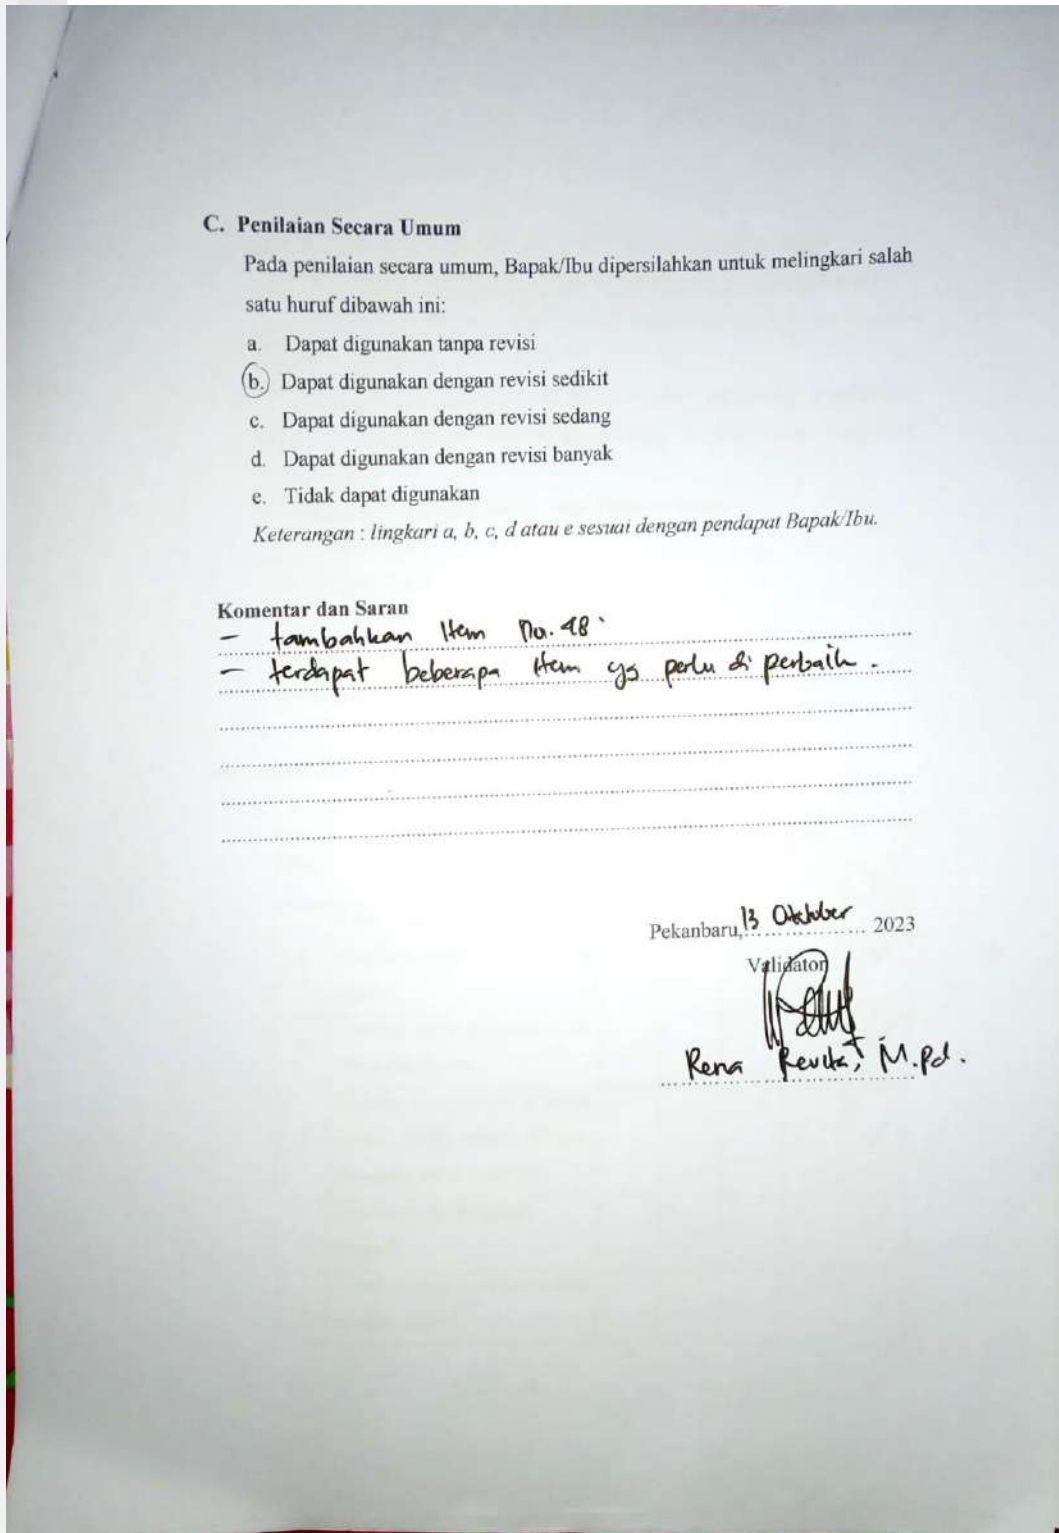 C. Penilaian Secara Umum
Pada penilaian secara umum, Bapak/Ibu dipersilahkan untuk melingkari salah
satu huruf dibawah ini:
a. Dapat digunakan tanpa revisi
b. Dapat digunakan dengan revisi sedikit
c. Dapat digunakan dengan revisi sedang
d. Dapat digunakan dengan revisi banyak
e. Tidak dapat digunakan
Keterangan : lingkari a, b, c, d atau e sesuai dengan pendapat Bapak/Ibu.
Komentar dan Saran
- tambahkan Item No. 48.
- terdapat beberapa Item yg perlu di perbaik.
Pekanbaru, 13 Oktober 2023
Validator
Rena Revita, M.Pd.